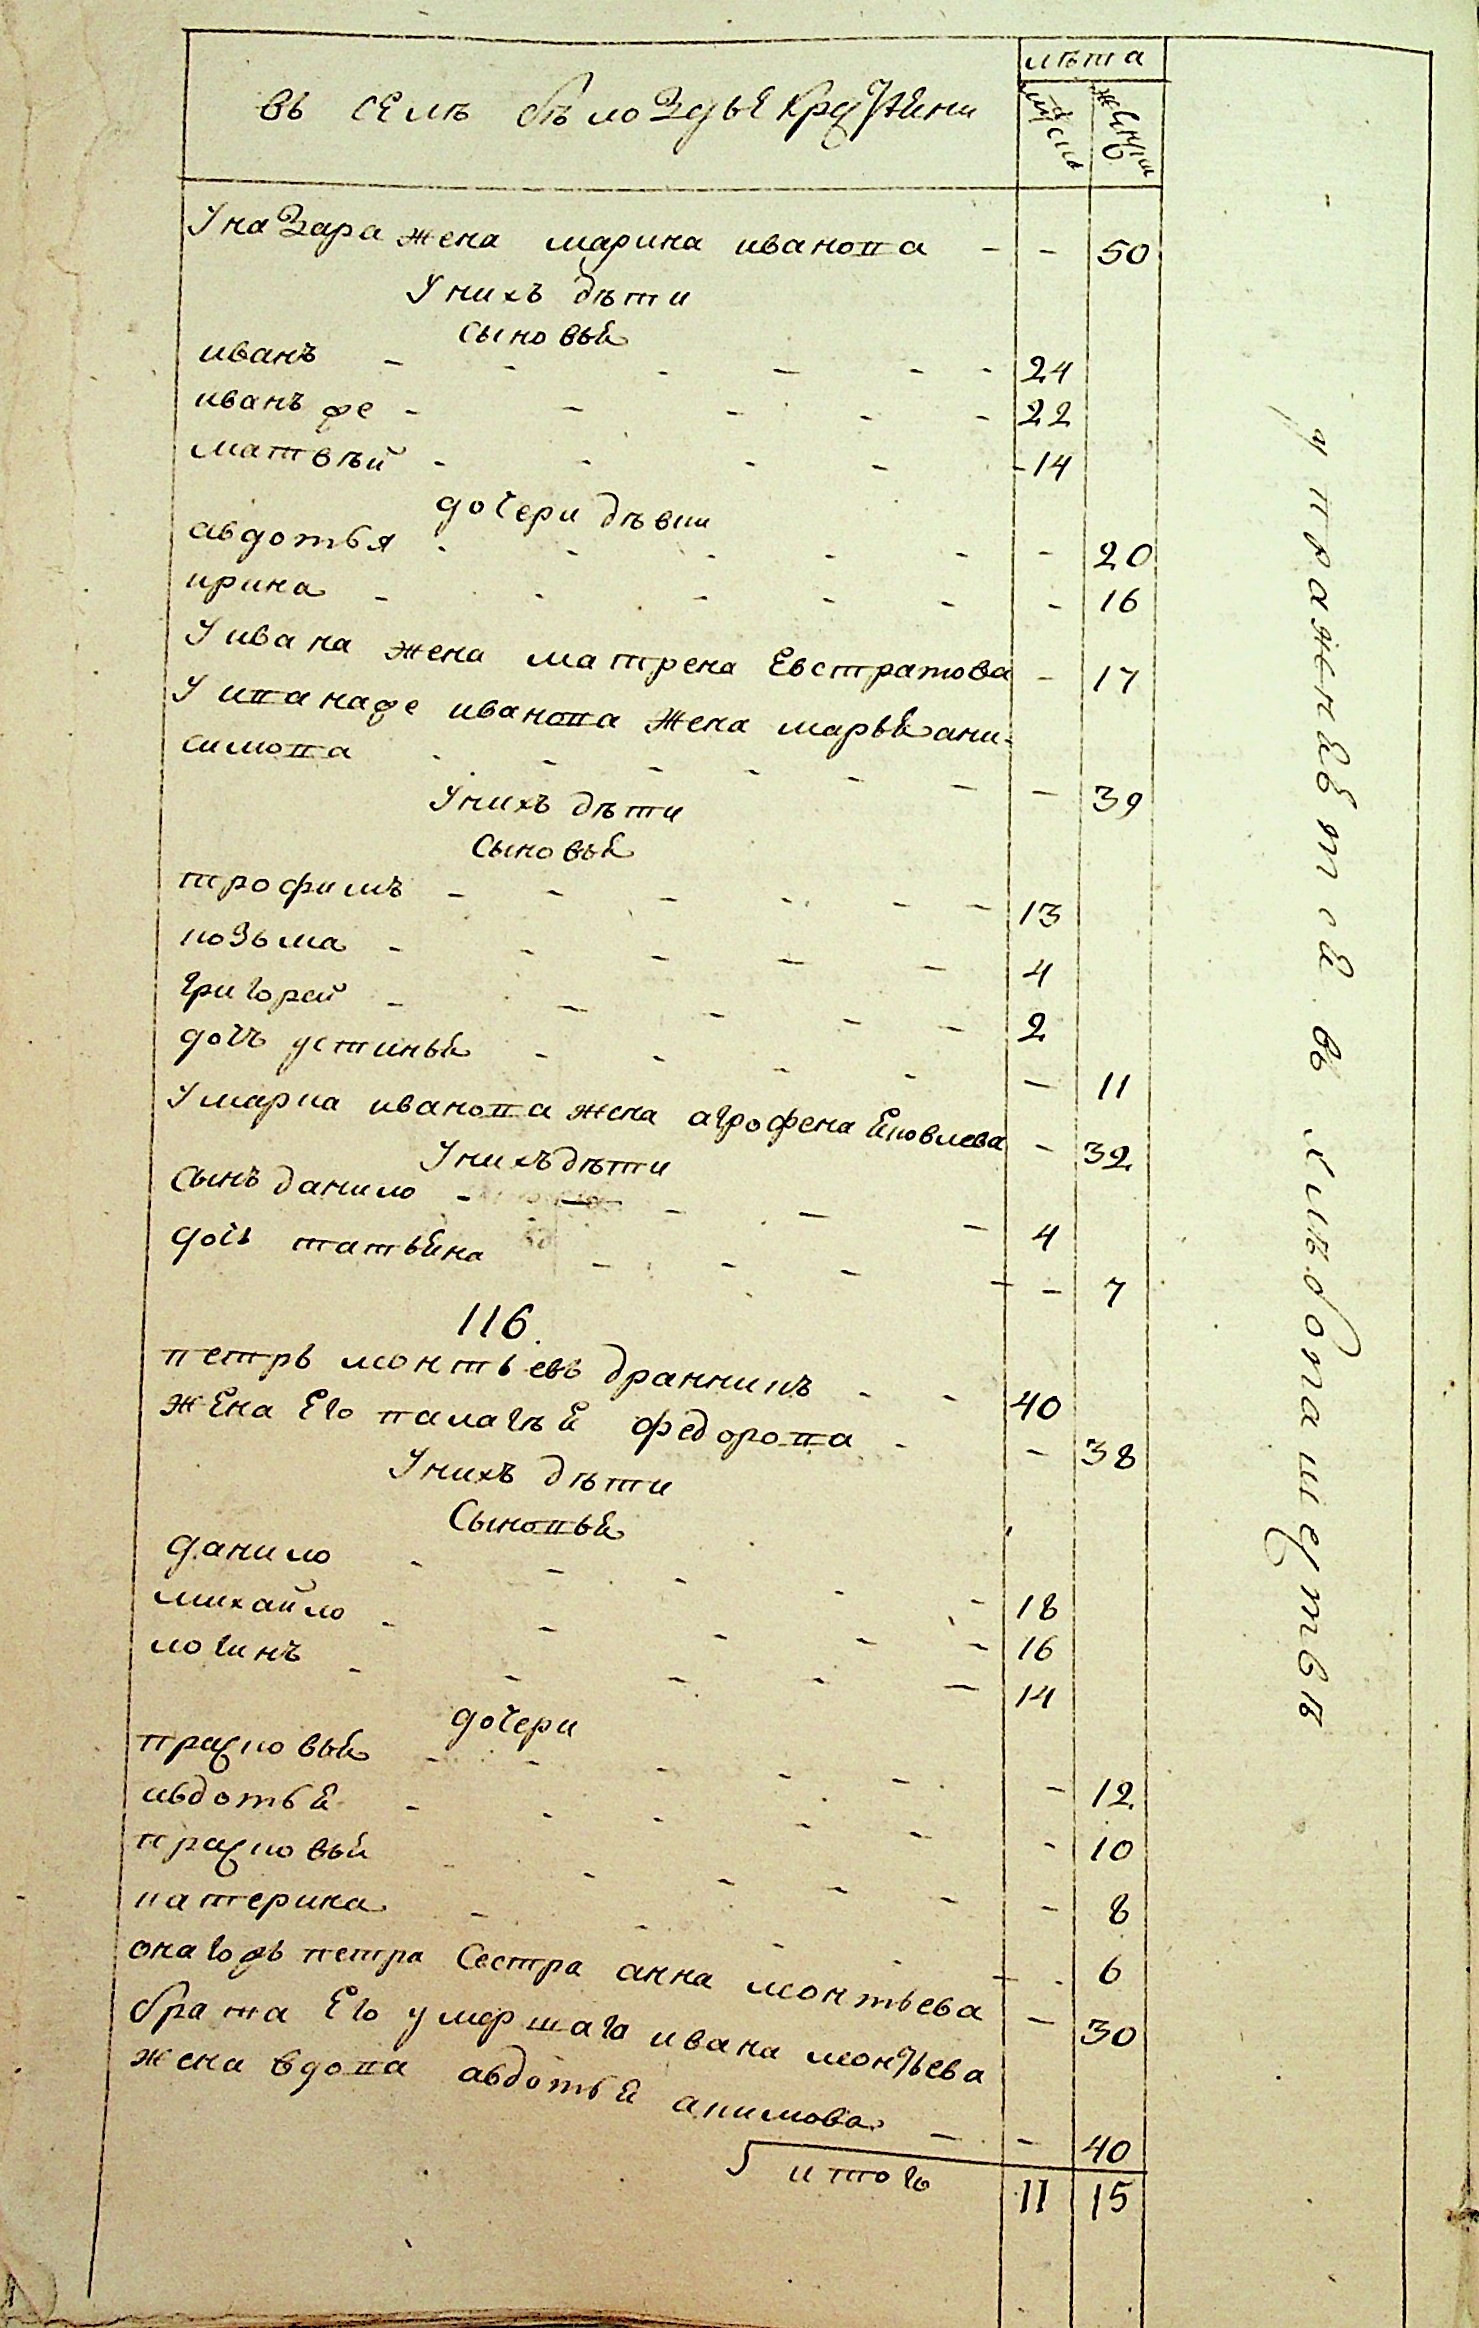 въ селѣ бѣлоздье крутени
лѣта
мужска
женска
У назара жена марина иванова - - 50
У нихъ дѣти
сыновья
иванъ - 24
иванъ же - 22
матвѣй - 14
дочери дѣвки
авдотья - 20
ирина - 16
У ивана жена матрена Евстратова - 17
У ивана же иванова жена марья ани-
симова - 39
У нихъ дѣти
сыновья
трофимъ - 13
козьма - 4
григорей - 2
дочь устинья - 11
У марка иванова жена агрофена Яковлева - 32
У нихъ дѣти
сынъ данило - 4
дочь татьяна - 7
116.
петръ леонтьевъ - 40
жена Его палагѣя федорова - 38
У нихъ дѣти
Сыновья
данило - 18
михайло - 16
логинъ - 14
дочери
прасковья - 12
авдотья - 10
прасковья - 8
катерина - 6
онагожъ петра Сестра анна леонтьева - 30
брата Его умершаго ивана леонтьева
жена вдова авдотья акимова - 40
итого 11 15
упражняется въ хлебопашествѣ